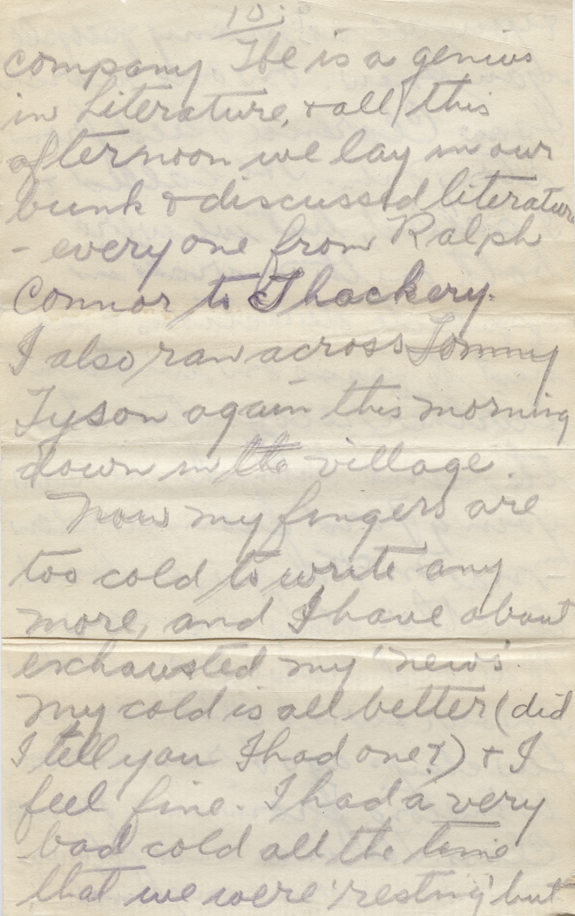 10.
company. He is a genius
in Literature, & all this
afternoon we lay in our
bunk & discussed literature
- everyone from Ralph
Connor to Thackery.
I also ran across Tommy
Tyson again this morning
down in the village.
Now my fingers are
too cold to write any
more, and I have about
exhausted my 'news'.
My cold is all better (did
I tell you I had one?) & I
feel fine. I had a very
bad cold all the time
that we were 'resting' but